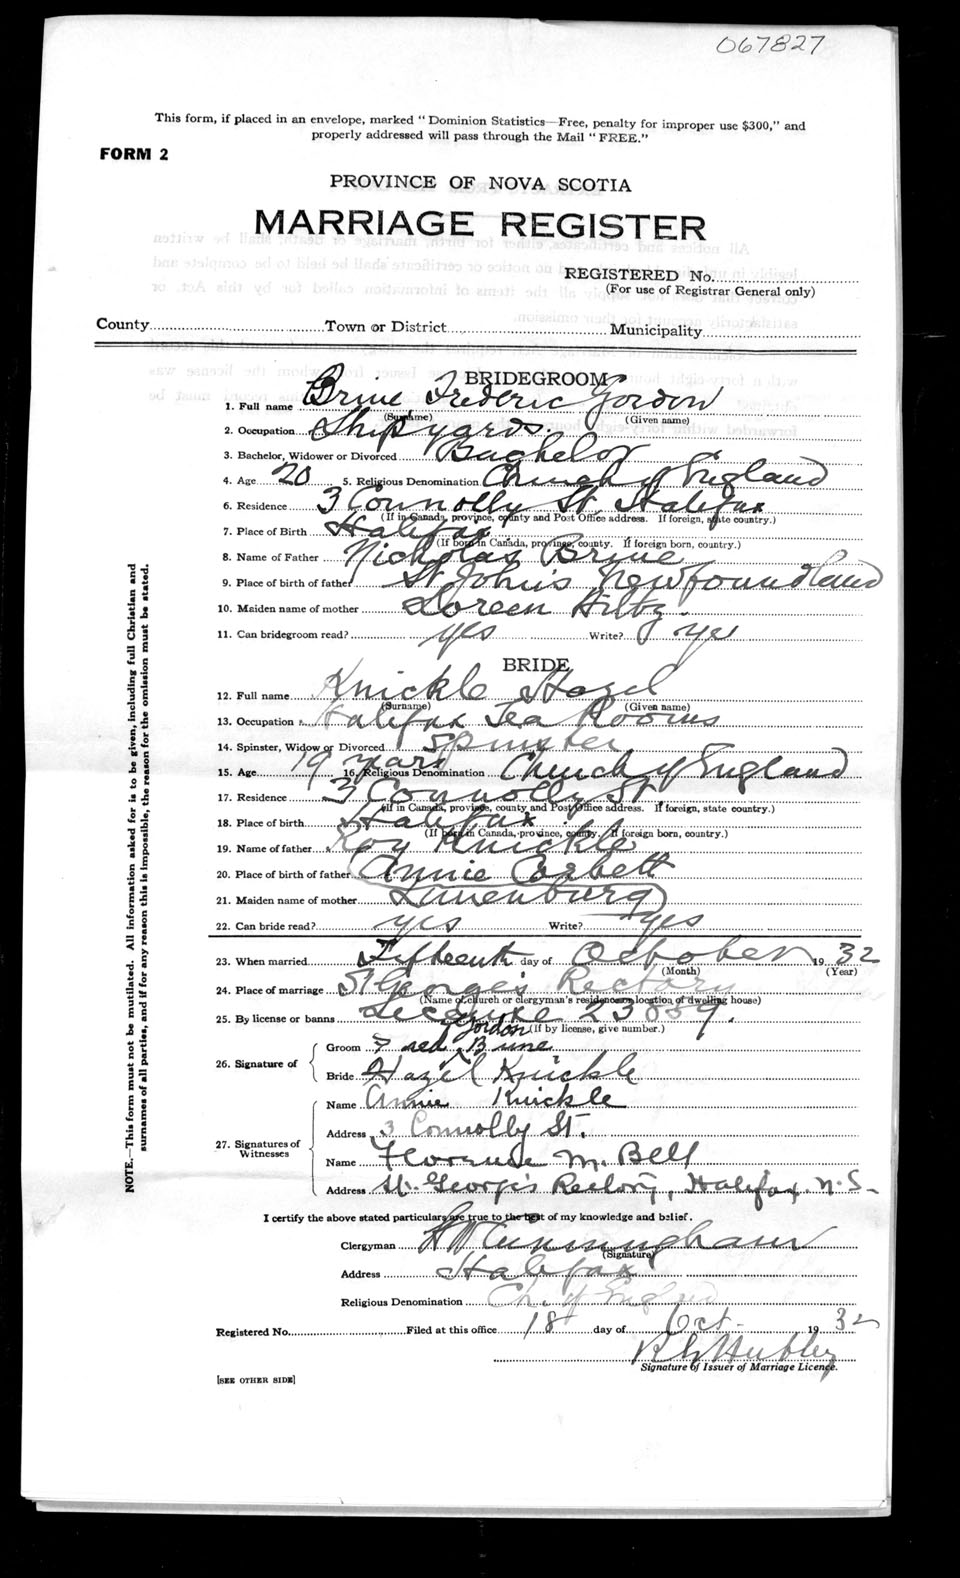 067827
This form, if placed in an envelope, marked "Dominion Statistics—Free, penalty for improper use $300," and
properly addressed will pass through the Mail "FREE."
FORM 2
PROVINCE OF NOVA SCOTIA
MARRIAGE REGISTER
REGISTERED No.
(For use of Registrar General only)
County Town or District Municipality
BRIDEGROOM
1. Full name Brine Frederic Gordon
(Surname) (Given name)
2. Occupation Shipyards.
3. Bachelor, Widower or Divorced Bachelor
4. Age 20 5. Religious Denomination Church of England
6. Residence 3 Connolly St. Halifax
(If in Canada, province, county and Post Office address. If foreign, state country.)
7. Place of Birth Halifax
(If born in Canada, province, county. If foreign born, country.)
8. Name of Father Nicholas Brine
9. Place of birth of father St John's Newfoundland
10. Maiden name of mother Loreen Hiltz.
11. Can bridegroom read? yes Write? yes
BRIDE
12. Full name Knickle Hazel
(Surname) (Given name)
13. Occupation Halifax Tea Rooms
14. Spinster, Widow or Divorced Spinster
15. Age 19 years 16. Religious Denomination Church of England
17. Residence 3 Connolly St
(If in Canada, province, county and Post Office address. If foreign, state country.)
18. Place of birth Halifax
(If born in Canada, province, county. If foreign born, country.)
19. Name of father Roy Knickle
20. Place of birth of father Annie Corbett
21. Maiden name of mother Lunenburg
22. Can bride read? yes Write? yes
23. When married Fifteenth day of October 1932
(Month) (Year)
24. Place of marriage St George's Rectory
(Name of church or clergyman's residence or location of dwelling house)
25. By license or banns License 23859.
(If by license, give number.)
26. Signature of
Groom Fred Gordon Brine
Bride Hazel Knickle
27. Signatures of Witnesses
Name Annie Knickle
Address 3 Connolly St.
Name Florence M. Bell
Address St. George's Rectory, Halifax. N.S.
I certify the above stated particulars are true to the best of my knowledge and belief.
Clergyman H W Cunningham
(Signature)
Address Halifax
Religious Denomination Ch. of England
Registered No. Filed at this office 18 day of Oct- 1932
Hubley
Signature of Issuer of Marriage Licence.
[SEE OTHER SIDE]
NOTE.—This form must not be mutilated. All information asked for is to be given, including full Christian and
surnames of all parties, and if for any reason this is impossible, the reason for the omission must be stated.